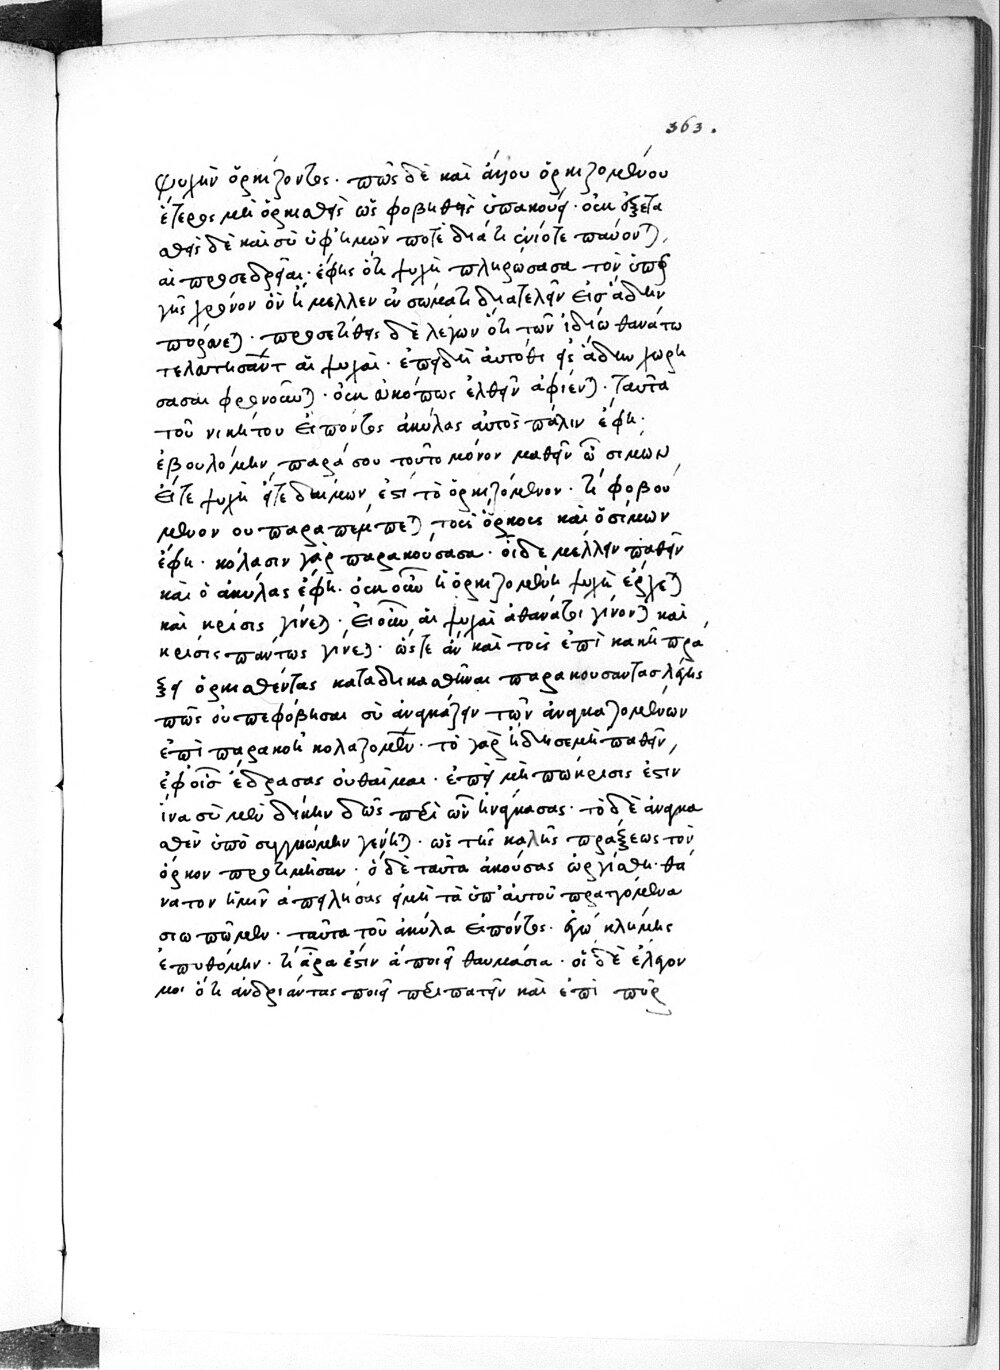 363.
ψυχὴν ὁρκίζοντος· πῶς δὲ καὶ ἁγίου ὁρκιζομένου
ἕτερος μὲν ὁρκισθεὶς ὡς φοβηθεὶς ὑπακούει· οὐκ ἐξετα
σθεὶς δὲ καὶ σὺ ὑφ' ἡμῶν ποτὲ διὰ τί ἐνίοτε παύονται
αἱ προσεδρεῖαι· ἔφης ὅτι ψυχὴ πληρώσασα τὸν ὑπὲρ
γῆς χρόνον ὃν ἤμελλεν ἐν σώματι διατελεῖν εἰς ἅδην
πορεύεται· προσετίθεις δὲ λέγων ὅτι τῶν ἰδίῳ θανάτῳ
τελευτησάντ αἱ ψυχαὶ· ἐπειδὴ αὐτόθι εἰς ἅδην χωρή
σασαι φρουροῦνται· οὐκ εὐκόπως ἐλθεῖν ἀφίενται· ταῦτα
τοῦ νικήτου εἰπόντος ἀκύλας αὐτὸς πάλιν ἔφη·
ἐβουλόμην παρά σου τοῦτο μόνον μαθεῖν ὦ σίμων
εἴτε ψυχὴ εἴτε δαίμων ἐστὶ τὸ ὁρκιζόμενον· τί φοβού
μενον οὐ παραπέμπεται τοὺς ὅρκους καὶ ὁ σίμων
ἔφη· κόλασιν γὰρ παρακούσασα· οἶδε μέλλειν παθεῖν
καὶ ὁ ἀκύλας ἔφη· οὐκοῦν ἡ ὁρκιζομένη ψυχὴ ἔρχεται
καὶ κρίσις γίνεται· εἰ οὖν αἱ ψυχαὶ ἀθάνατοι γίνονται καὶ
κρίσις πάντως γίνεται· ὥστε ἂν καὶ τοὺς ἐπὶ κακῇ πρά
ξει ὁρκισθέντας καταδικασθῆναι παρακούσαντας λέγεις
πῶς οὐ πεφόβησαι σὺ ἀναγκάζειν τῶν ἀναγκαζομένων
ἐπὶ παρακοῇ κολαζομένων· τὸ γὰρ ἤδη σε μὴ παθεῖν
ἐφ' οἷς ἔδρασας οὐ θαῦμα· ἐπεὶ μήπω κρίσις ἐστὶν
ἵνα σὺ μὲν δίκην δῷς περὶ ὧν ἠνάγκασας· τὸ δὲ ἀναγκα
σθὲν ὑπὸ συγγνώμην γένηται· ὡς τῆς καλῆς πράξεως τὸν
ὅρκον προτιμῆσαν· ὁ δὲ ταῦτα ἀκούσας ὠργίσθη· θά
νατον ἡμῖν ἀπειλήσας εἰ μὴ τὰ ὑπ' αὐτοῦ πραττόμενα
σιωπῶμεν· ταῦτα τοῦ ἀκύλα εἰπόντος· ἐγὼ κλήμης
ἐπυθόμην· τί ἄρα ἐστὶν ἃ ποιεῖ θαυμάσια· οἱ δὲ ἔλεγον
μοι ὅτι ἀνδριάντας ποιεῖ περιπατεῖν καὶ ἐπὶ πῦρ